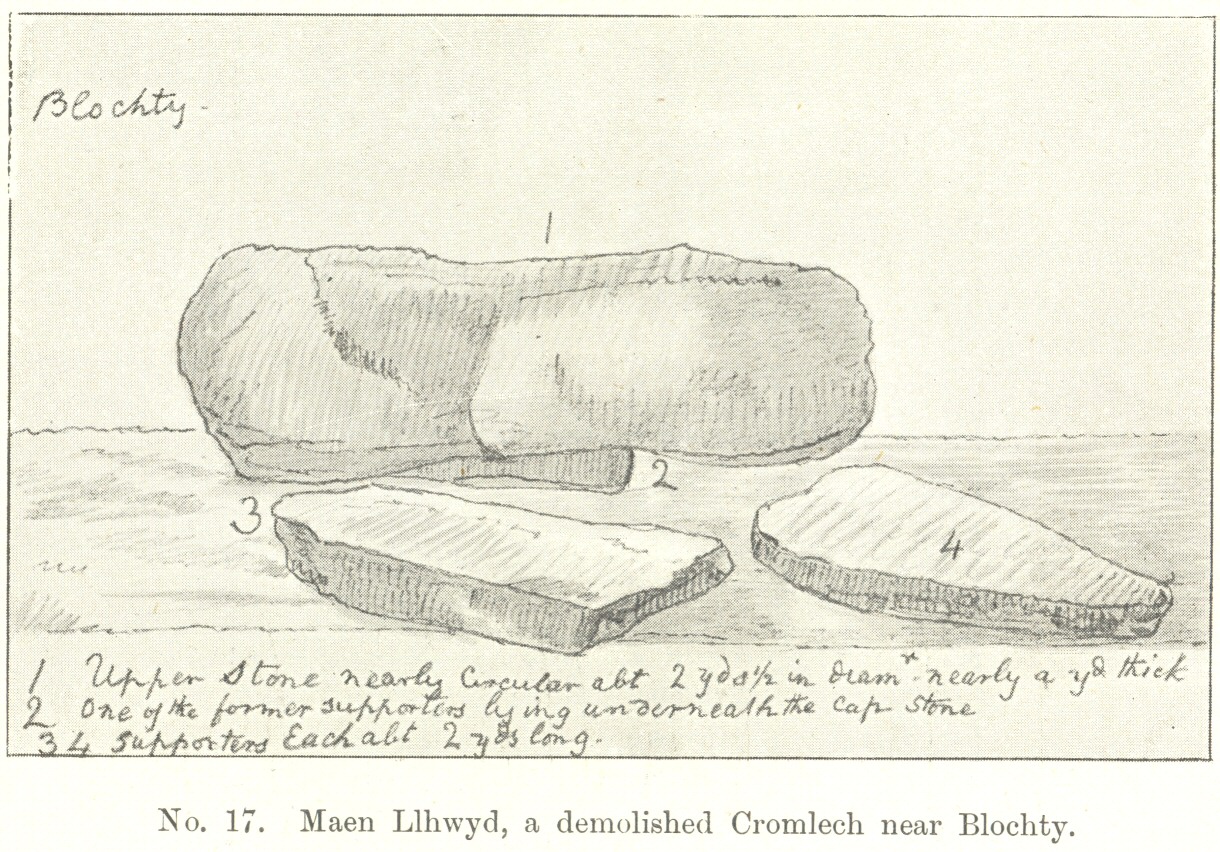 Blochty-
1
2
3
4
1 Upper Stone nearly Circular abt 2 yds 1/2 in diamr. nearly a yd thick
2 One of the former supporters lying underneath the Cap Stone
3 4 Supporters Each abt 2 yds long.
No. 17. Maen Llhwyd, a demolished Cromlech near Blochty.